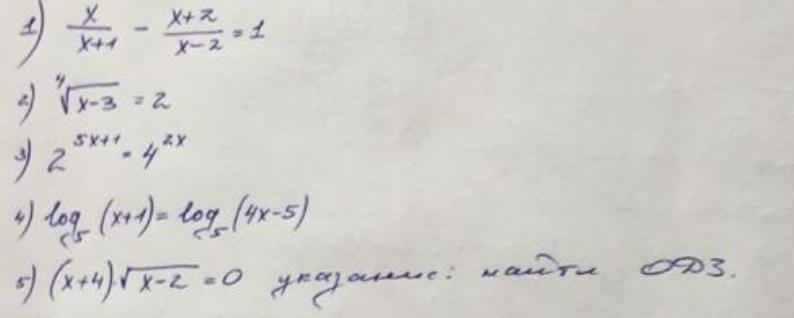 1) x/(x+1) - (x+2)/(x-2) = 1
2) ⁴√(x-3) = 2
3) 2^(5x+1) = 4^(2x)
4) log₅(x+1) = log₅(4x-5)
5) (x+4)·√(x-2) = 0 указание: найти ОДЗ.